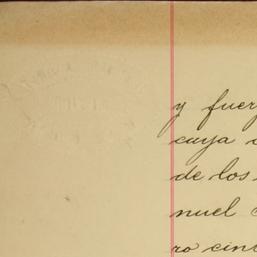 y fuer
cuya
de los
nuel
ro cin